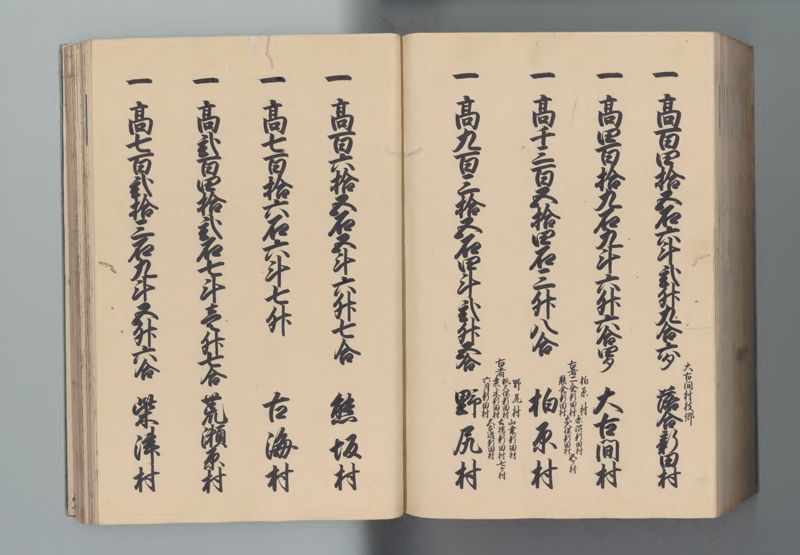 一 高百四拾五石六斗弐升九合六夕
大古間村枝郷
落合新田村
一 高四百拾九石九斗六升六合四夕
大古間村
一 高千三百五拾四石三升八合
柏原村
赤渋新田村
古者二之倉新田村
熊倉新田村
柏原村
一 高九百三拾五石四斗弐升五合
野尻村
古者
六月新田村
野尻村
一 高百六拾五石五斗六升七合
熊坂村
一 高七百拾六石六斗七升
古海村
一 高弐百四拾弐石七斗壱升七合
荒瀬原村
一 高七百弐拾三石九斗五升六合
柴津村